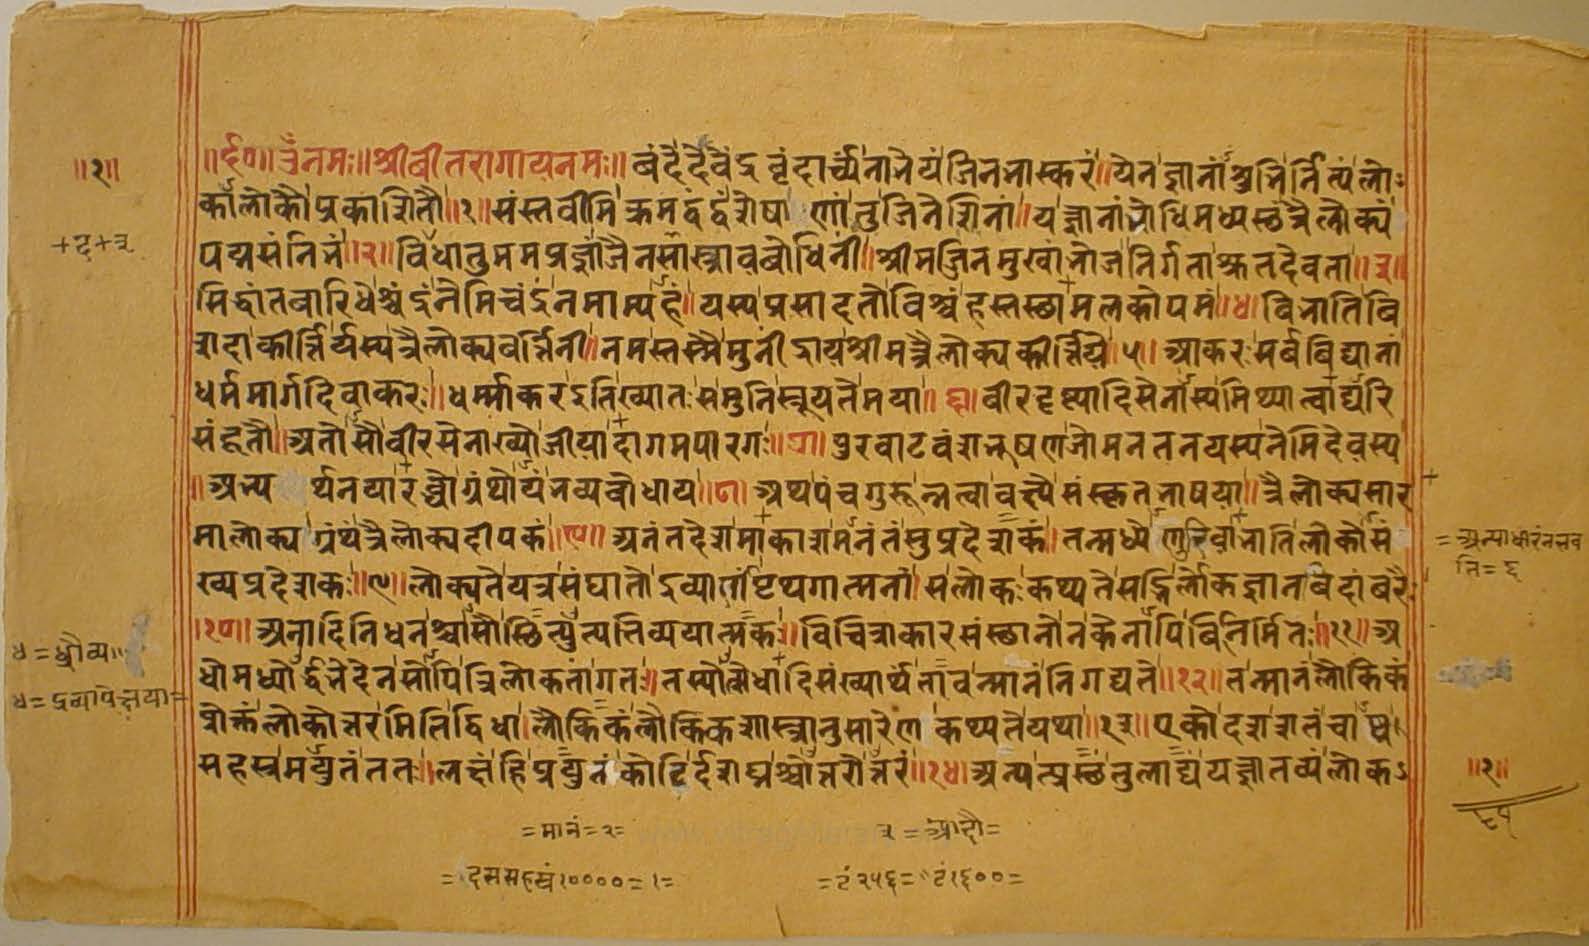 ॥१॥
॥६०॥ ॐ नमः॥ श्रीवीतरागाय नमः॥ वंदे देवेंद्रवृंदार्च्य नाभेयं जिनभास्करं॥ येन ज्ञानांशुभिर्नित्यं लो
कालोकौ प्रकाशितौ॥१॥ संस्तवीमि क्रमद्वंद्वं शेषाणां तु जिनेशिनां॥ यज्ञानांभोधिमध्यस्छं त्रैलोक्यं
पद्मसंनिभं॥२॥ विधातु मम प्रज्ञां जैनसास्त्रावबोधिनीं॥ श्रीमज्जिनमुखांभोजनिर्गता श्रुतदेवता॥३॥
सिद्धांतवारिधेश्चंद्रं नेमिचंद्रं नमाम्यहं॥ यस्य प्रसादतो विश्वं हस्तस्छामलकोपमं॥४॥ विभाति वि
शदा कीर्त्तिर्यस्य त्रैलोक्यवर्त्तिनी॥ नमस्तस्मै मुनींद्राय श्रीमत्रैलोक्यकीर्त्तये॥५॥ आकरः सर्वविद्यानां
धर्ममार्गदिवाकरः॥ धर्म्माकरऽतिख्यातः स मुनि स्तूयते मया॥६॥ वीरदृष्ट्यादिसेनास्य मिथ्यात्वाद्यरि
संहृतौ॥ अतो सौ वीरसेनाख्यो जीयादागमपारगः॥७॥ पुरवाटवंशभूषण जोमनतनयस्य नेमिदेवस्य
॥अभ्यर्थनयारब्धो ग्रंथोयं भव्यबोधाय॥८॥ अथ पंचगुरून्नत्वा वक्ष्ये संस्कृतभाषया॥ त्रैलोक्यसार
मालोक्य ग्रंथं त्रैलोक्यदीपकं॥९॥ अनंतदेशमाकाशमनंतं सुप्रदेशकं॥ तन्मध्ये णुरिवाभाति लोकोसं
ख्यप्रदेशकः॥९॥ लोक्यते यत्र संघातो
स लोकः कथ्यते सद्भिर्लोकज्ञानविदांवरैः
॥१०॥ अनादिनिधनश्चासौ स्छित्युत्पत्तिव्ययात्मकः॥ विचित्राकारसंस्छानो न केनापि विनिर्मितः॥११॥ अ
धोमध्योर्द्धभेदेन सोपि त्रिलोकतां गतः॥
संख्यार्थं तावन्मानं निगद्यते॥१२॥ तन्मानं लौकिकं
प्रोक्तं लोकोत्तरमिति द्विधा॥ लौकिकं लौकिकशास्त्रानुसारेण कथ्यते यथा॥१३॥ एकोदशशतं चाथ
सहस्रमयुतं ततः॥ लक्षं हि प्रयुतं कोटिर्दशघ्नश्चोत्तरोत्तरं॥१४॥ अन्यत्प्रस्छं तुलाद्यं यज्ञातव्यं लोक
४=ध्रौव्य॥
४=द्रव्यापेक्षया=
॥१॥
=मानं=२=
३=आदौ=
=दससहस्रं१००००=१=
=टं२५६=टं१६००=